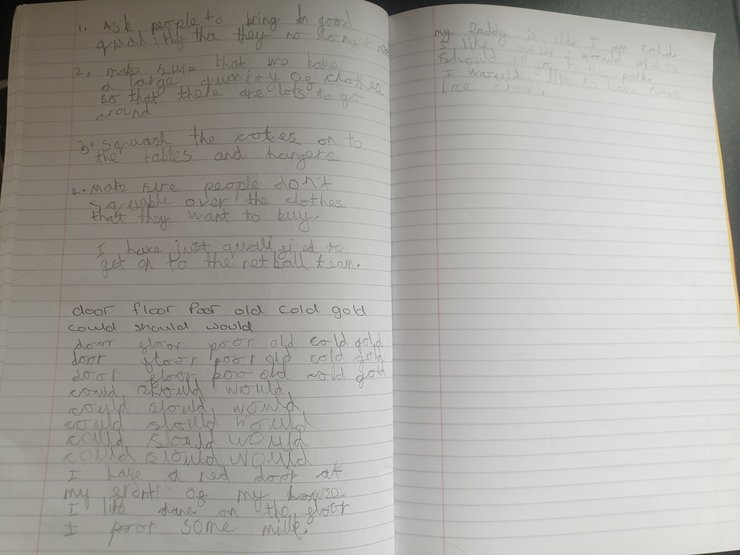 1. Ask people to bring in good
quality
that they no longer
2. make sure that we have
a large quanity of clothes
so that there are lots to go
around
3. squash the cotes on to
the tables and hangers
4. make sure people don't
squable over the clothes
that they want to buy.
I have just qualified to
get on to the netball team.
door floor Poor old cold gold
could should would
door floor poor old cold gold
door floor poor old cold gold
door floor poor old cold gold
could should would
could should would
could should would
could slould would
could slould would
I have a red door at
my front of my
I like dane on the floor
I poor some milk.
my Daddy is old. I am cold.
I like
should
I go to the park.
I would like to have some
ice cream.